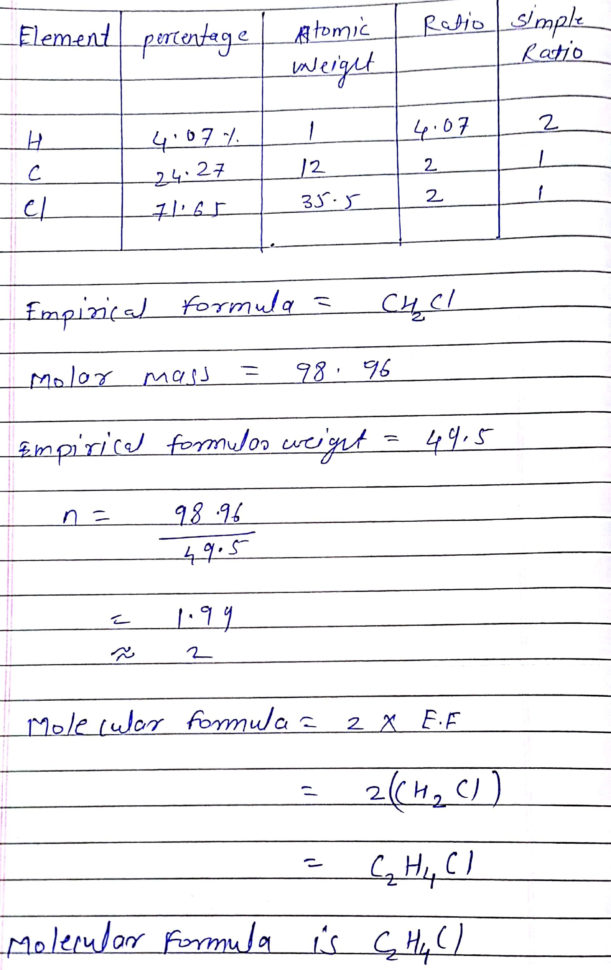 Element percentage Atomic Weight Ratio Simple Ratio
H 4.07% 1 4.07 2
C 24.27 12 2 1
Cl 71.65 35.5 2 1
Empirical formula = CH2Cl
Molar mass = 98.96
Empirical formulas weight = 49.5
n = 98.96
49.5
= 1.99
≈ 2
Molecular formula = 2 x E.F
= 2(CH2Cl)
= C2H4Cl
Molecular Formula is C2H4Cl